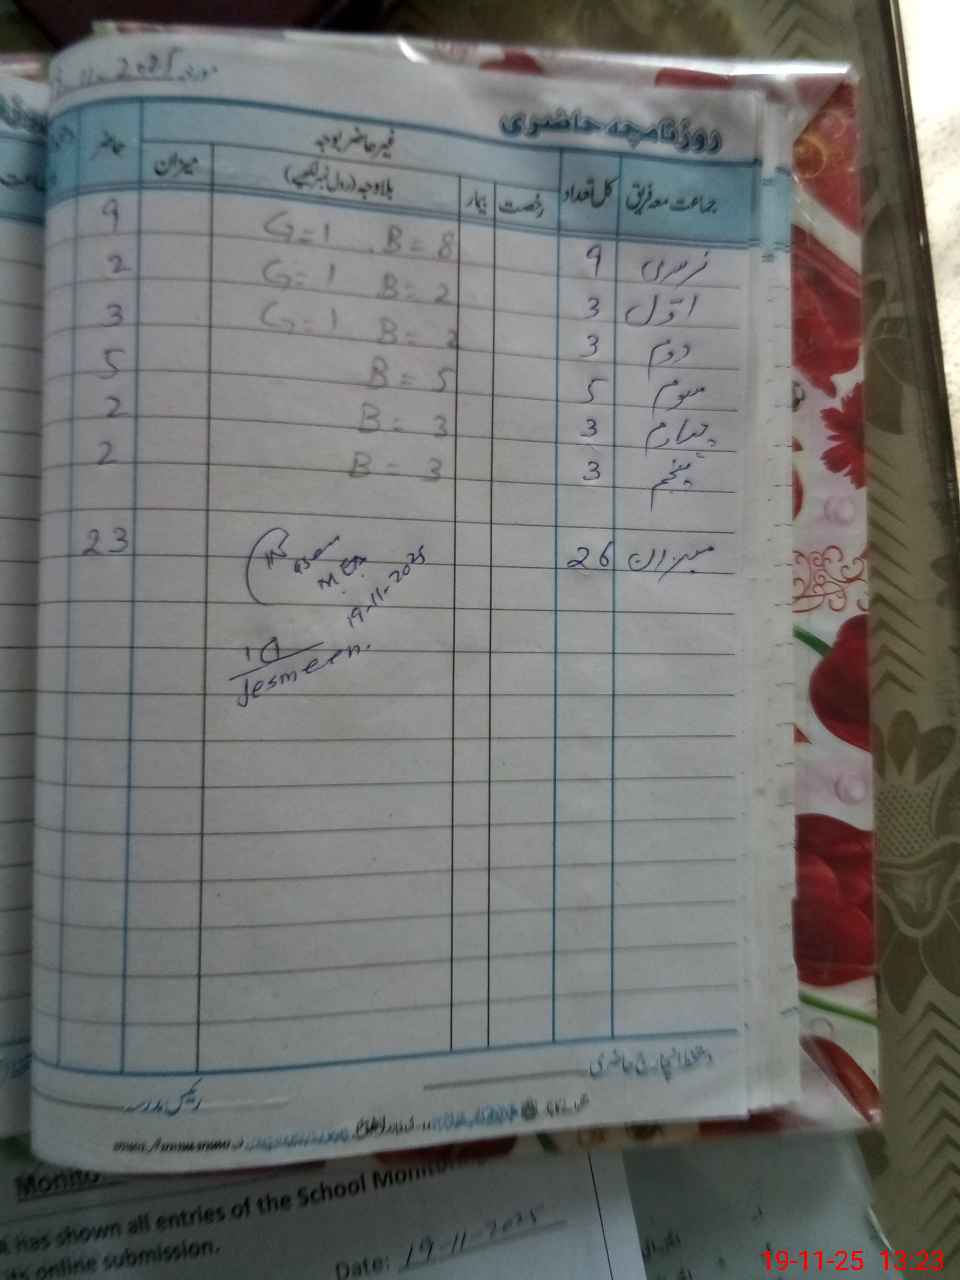 11-2025 مورخہ
روزنامچہ حاضری
جماعت معہ فریق کل تعداد رخصت بیمار غیر حاضر بوجہ بلاوجہ (رول نمبر لکھیے) میزان حاضر
نرسری 9 G=1 B=8 9
اول 3 G=1 B=2 2
دوم 3 G=1 B=2 3
سوم 5 B=5 5
چہارم 3 B=3 2
پنجم 3 B=3 2
میزان 26 23
19-11-2025
Jesmeen.
دستخط انچارج حاضری
رئیس مدرسہ
Monito
has shown all entries of the School Monito
its online submission.
Date: 19-11-2025
19-11-25 13:23